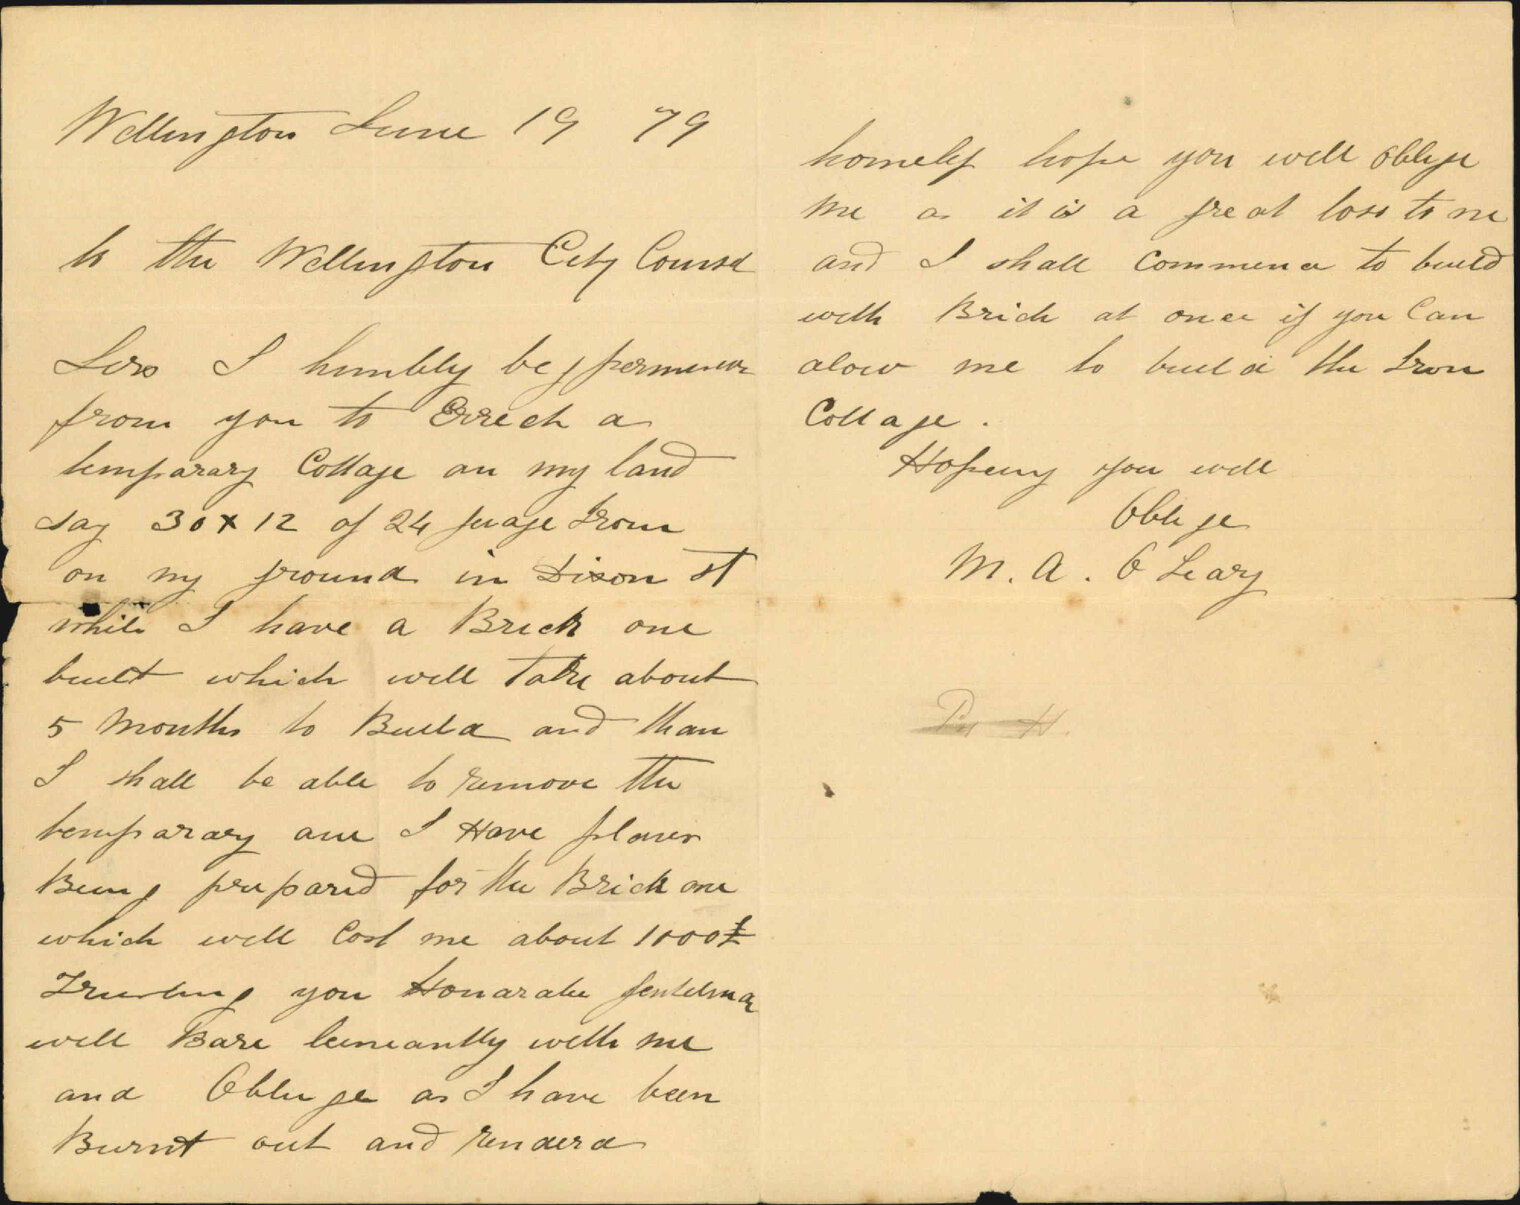 Wellington June 19 79
to the Wellington City Counsel
Sirs I humbly beg permission
from you to Errech a
temparary Cottage on my land
say 30 x 12 of 24 guage Iron
on my ground in Dixon st
while I have a Brick one
built which will take about
5 Months to Build and than
I shall be able to remove the
temparary one I Have planes
Being prepared for the Brick one
which will Cost me about 1000£
Trusting you Honarable gentelman
will Bare leneantly with me
and Obliuge as I have been
Burnt out and renderd
homely hope you will oblige
me as it is a great loss to me
and I shall Commence to build
with Brick at once if you Can
alow me to build the Iron
Cottage.
Hopeing you will
Oblige
M. A. O Leary